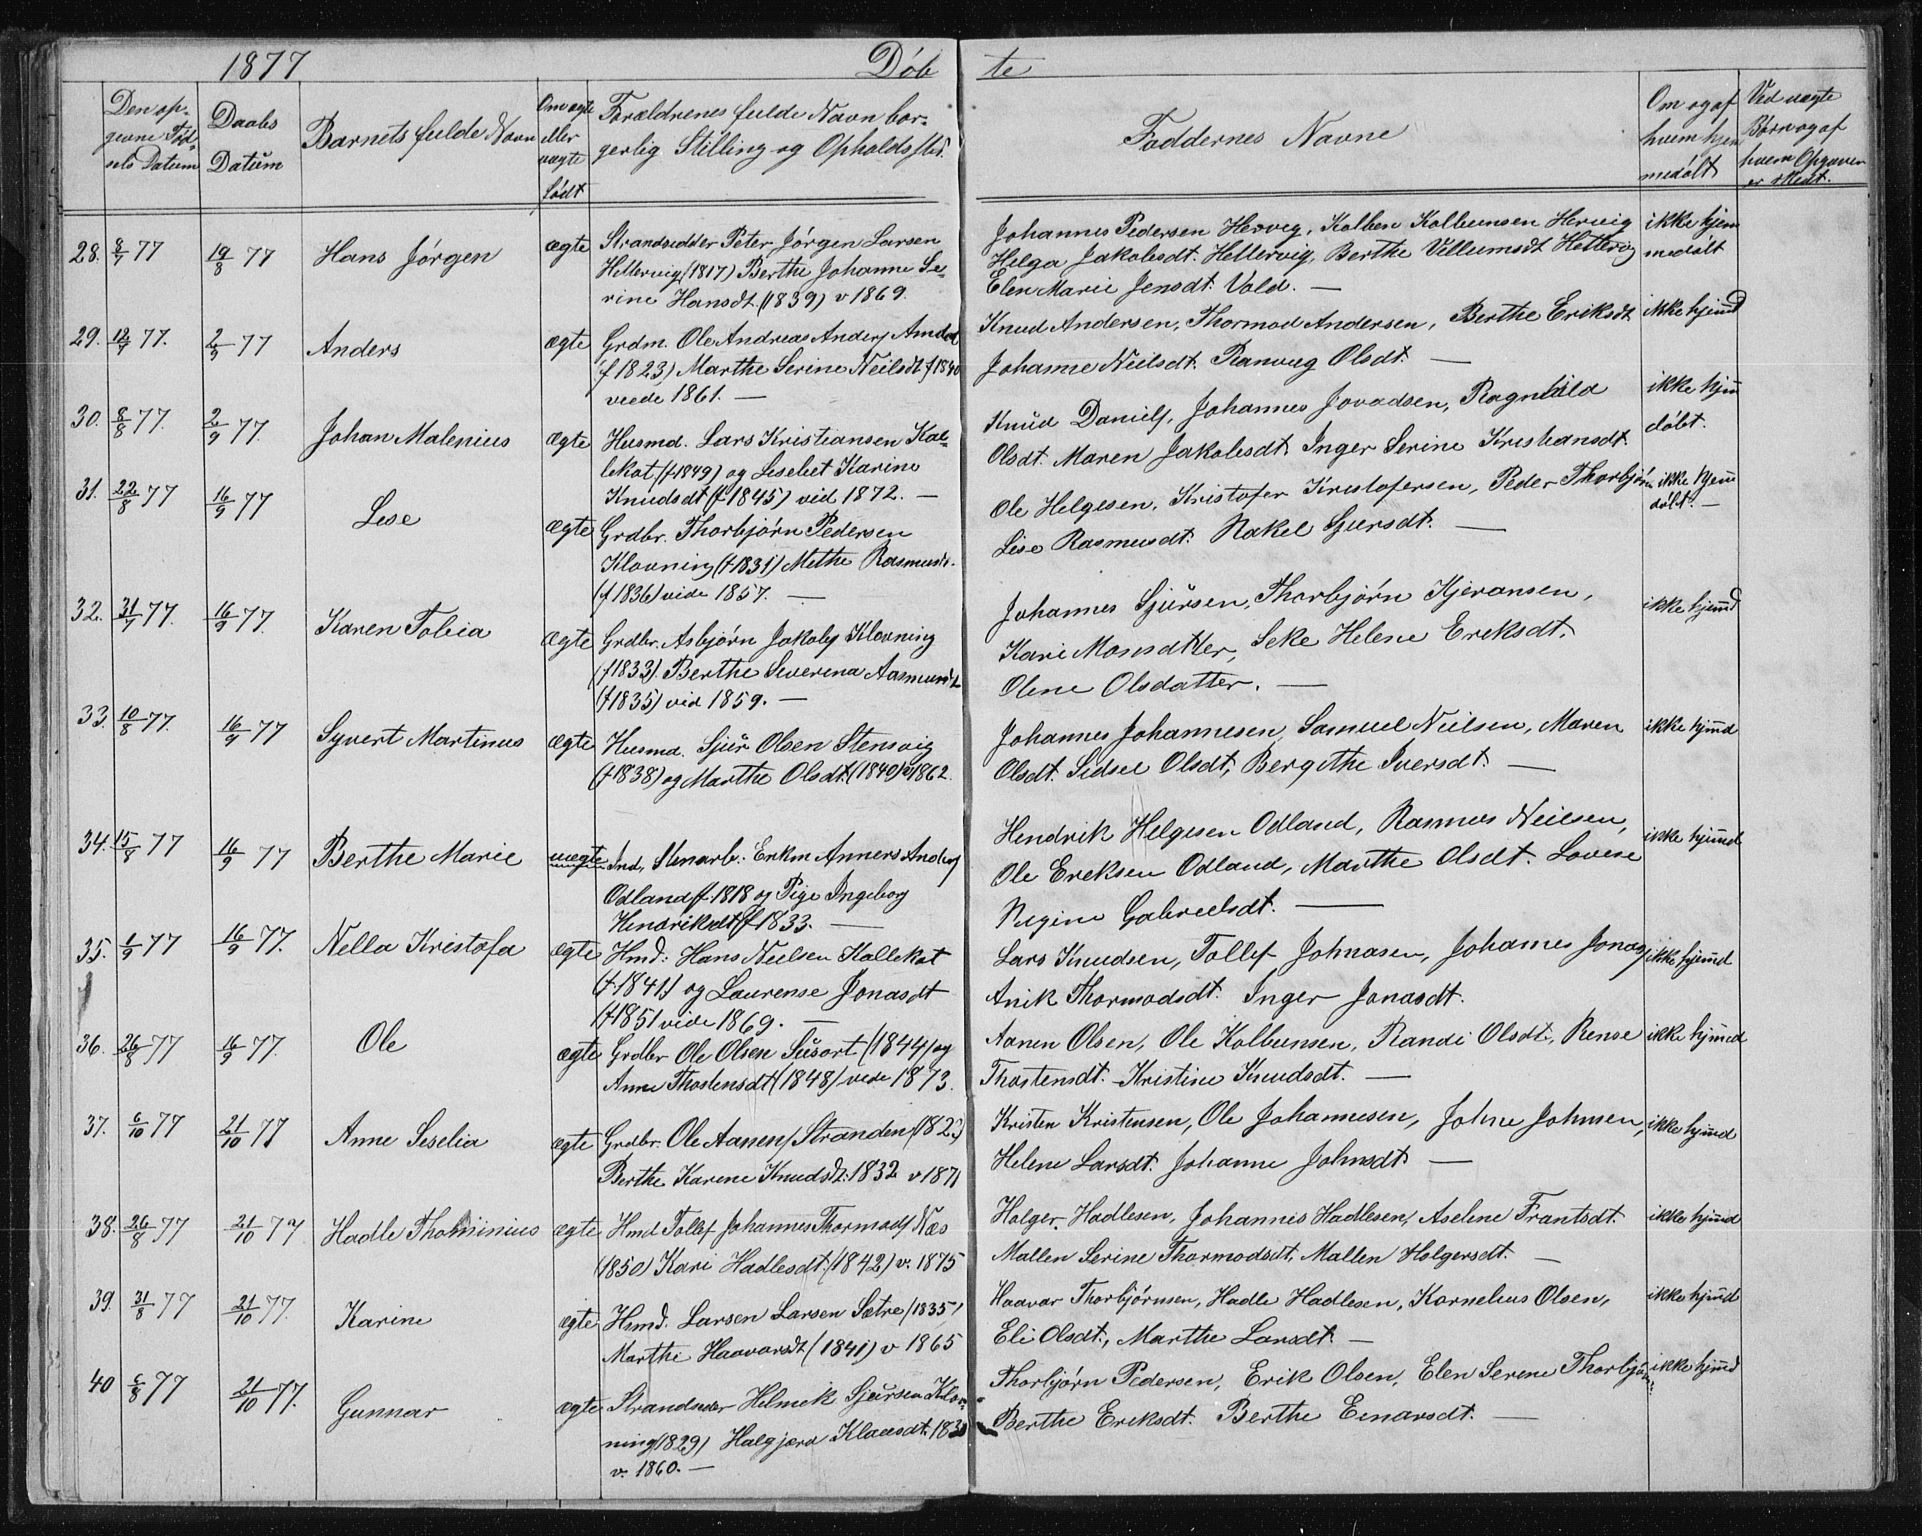 1877 Døbte
Den op- Daabs Barnets fulde Navn Om ægte Forældrenes fulde Navn bor- Faddernes Navne Om og af Ved uægte
givne Fød- Datum eller gerlig Stilling og Opholdssted. hvem hjem Børn og af
sels Datum uægte medøbt hvem Opgaven
født er skedt.
28. 8/7 77 19/8 77 Hans Jørgen ægte Strandsidder Peter Jørgen Larsen Johannes Pedersen Hervig, Kolben Kolbensen Hervig ikke hjem
Hettervig (1817) Berthe Johanne Se- Helga Jakobsdt. Hettervig, Berthe Villumsdt Hettervig medøbt
rine Hansdt. (1839) v 1869. Elen Marie Jensdt. Vold. —
29. 12/7 77. 2/9 77 Anders ægte Grdm. Ole Andreas Anders Amdal Knud Andersen, Thormod Andersen, Berthe Eriksdt ikke hjemd
f 1823) Marthe Serine Neilsdt. f 1840 Johanne Neilsdt. Ranveig Olsdt. —
viede 1861. —
30. 8/8 77. 2/9 77. Johan Malenius ægte Husmd. Lars Kristiansen Kal- Knud Daniels, Johannes Jovadsen, Ragnhild ikke hjem
lekot (f 1849) og Lesebet Karine Olsdt. Maren Jakobsdt. Inger Serine Kristiansdt. døbt.
Knudsdt (f 1845) vid 1872. —
31. 22/8 77 16/9 77 Lese ægte Grdbr. Thorbjørn Pedersen Ole Helgesen, Kristofer Kristofersen, Peder Thorbjørn ikke hjem
Klovning (f 1831) Methe Rasmusdt. Lise Rasmusdt. Rakel Sjursdt. — døbt. —
(f 1836) vide 1857. —
32. 31/7 77. 16/9 77. Karen Tobia ægte Grdbr. Asbjørn Jakobs Klovning Johannes Sjursen, Thorbjørn Kjeransen, ikke hjemd
(f 1833). Berthe Severena Aasmundst Kari Monsdtter, Seke Helene Ereksdt.
(f 1835) vid 1859. — Olene Olsdatter. —
33. 10/8 77. 16/9 77 Syvert Martinus ægte Husmd. Sjur Olsen Stensvig Johannes Johannesen, Samuel Nielsen, Maren ikke hjemd
(f 1838) og Marthe Olsdt. (1840) v 1862. Olsdt. Sidsel Olsdt, Bergithe Iversdt. —
34. 15/8 77 16/9 77 Berthe Marie uægte Ind. Stenarb. Enkm Anners Anders Hendrik Helgesen Odland, Rasmus Neilsen, ikke hjemd
Odland f. 1818 og Pige Ingeborg Ole Ereksen Odland, Marthe Olsdt. Lovise
Hendriksdt f 1833. — Regine Gabrielsdt. —
35. 1/9 77 16/9 77. Nella Kristofa ægte Hmd. Hans Neelsen Kallekot Lars Knudsen, Tollef Johnasen, Johannes Jonas ikke hjemd
(f. 1841) og Laurense Jonasdt Anik Thormodsdt. Inger Jonasdt.
(f 1851 vide 1869. —
36. 26/8 77 16/9 77. Ole ægte Grdbr Ole Olsen Susort (1844) og Aanen Olsen, Ole Kolbensen, Randi Olsdt, Rense ikke hjemd
Anne Thostensdt (1848) vede 1873. Thostensdt. Kristine Knudsdt. —
37. 6/10 77 21/10 77 Anne Seselia ægte Grdbr. Ole Aanens Stranden (1823) Kristen Kristensen, Ole Johannesen, Johne Johnsen, ikke hjemd
Berthe Karene Knudsdt. 1832 v 1871 Helene Larsdt. Johanne Johnsdt. —
38. 26/8 77 21/10 77 Hadle Thominius ægte Hmd Tollef Johannes Thormods Næs Holger Hadlesen, Johannis Hadlesen, Aselene Frantsdt. ikke hjemd
(1850) Kari Hadlesdt. (1842) v. 1875 Mallen Serine Thormodsdt, Mallen Holgersdt. —
39. 31/8 77 21/10 77. Karine ægte Hmd. Larsen Larsen Sætre (1835) Haavar Thorbjørnsen, Hadle Hadlesen, Kornelius Olsen, ikke hjemd
Marthe Haavarsdt (1841) v 1865 Eli Olsdt., Marthe Larsdt. —
40 6/8 77 21/10 77. Gunnar ægte Strandseder Helmek Sjursen Klov- Thorbjørn Pedersen, Erik Olsen, Elen Serene Thorbjø ikke hjemd
ning (1829) Halgjerd Klausdt. 183 Berthe Ereksdt. Berthe Einarsdt. —
v. 1860. —